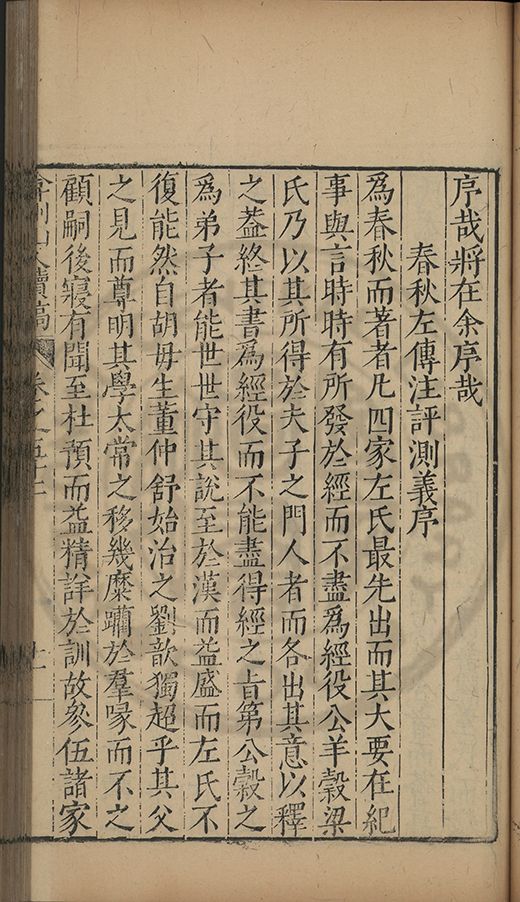 序哉將在余序哉
春秋左傳注評測義序
為春秋而著者凡四家左氏最先出而其大要在紀
事與言時時有所發於經而不盡為經役公羊穀梁
氏乃以其所得於夫子之門人者而各出其意以釋
之葢終其書為經役而不能盡得經之㫖第公穀之
為弟子者能世世守其說至於漢而益盛而左氏不
復能然自胡毋生董仲舒始治之劉歆獨超乎其父
之見而尊明其學太常之移幾糜躪於羣喙而不之
顧嗣後寖有聞至杜預而益精詳於訓故參伍諸家
山人續稿 卷之五十二